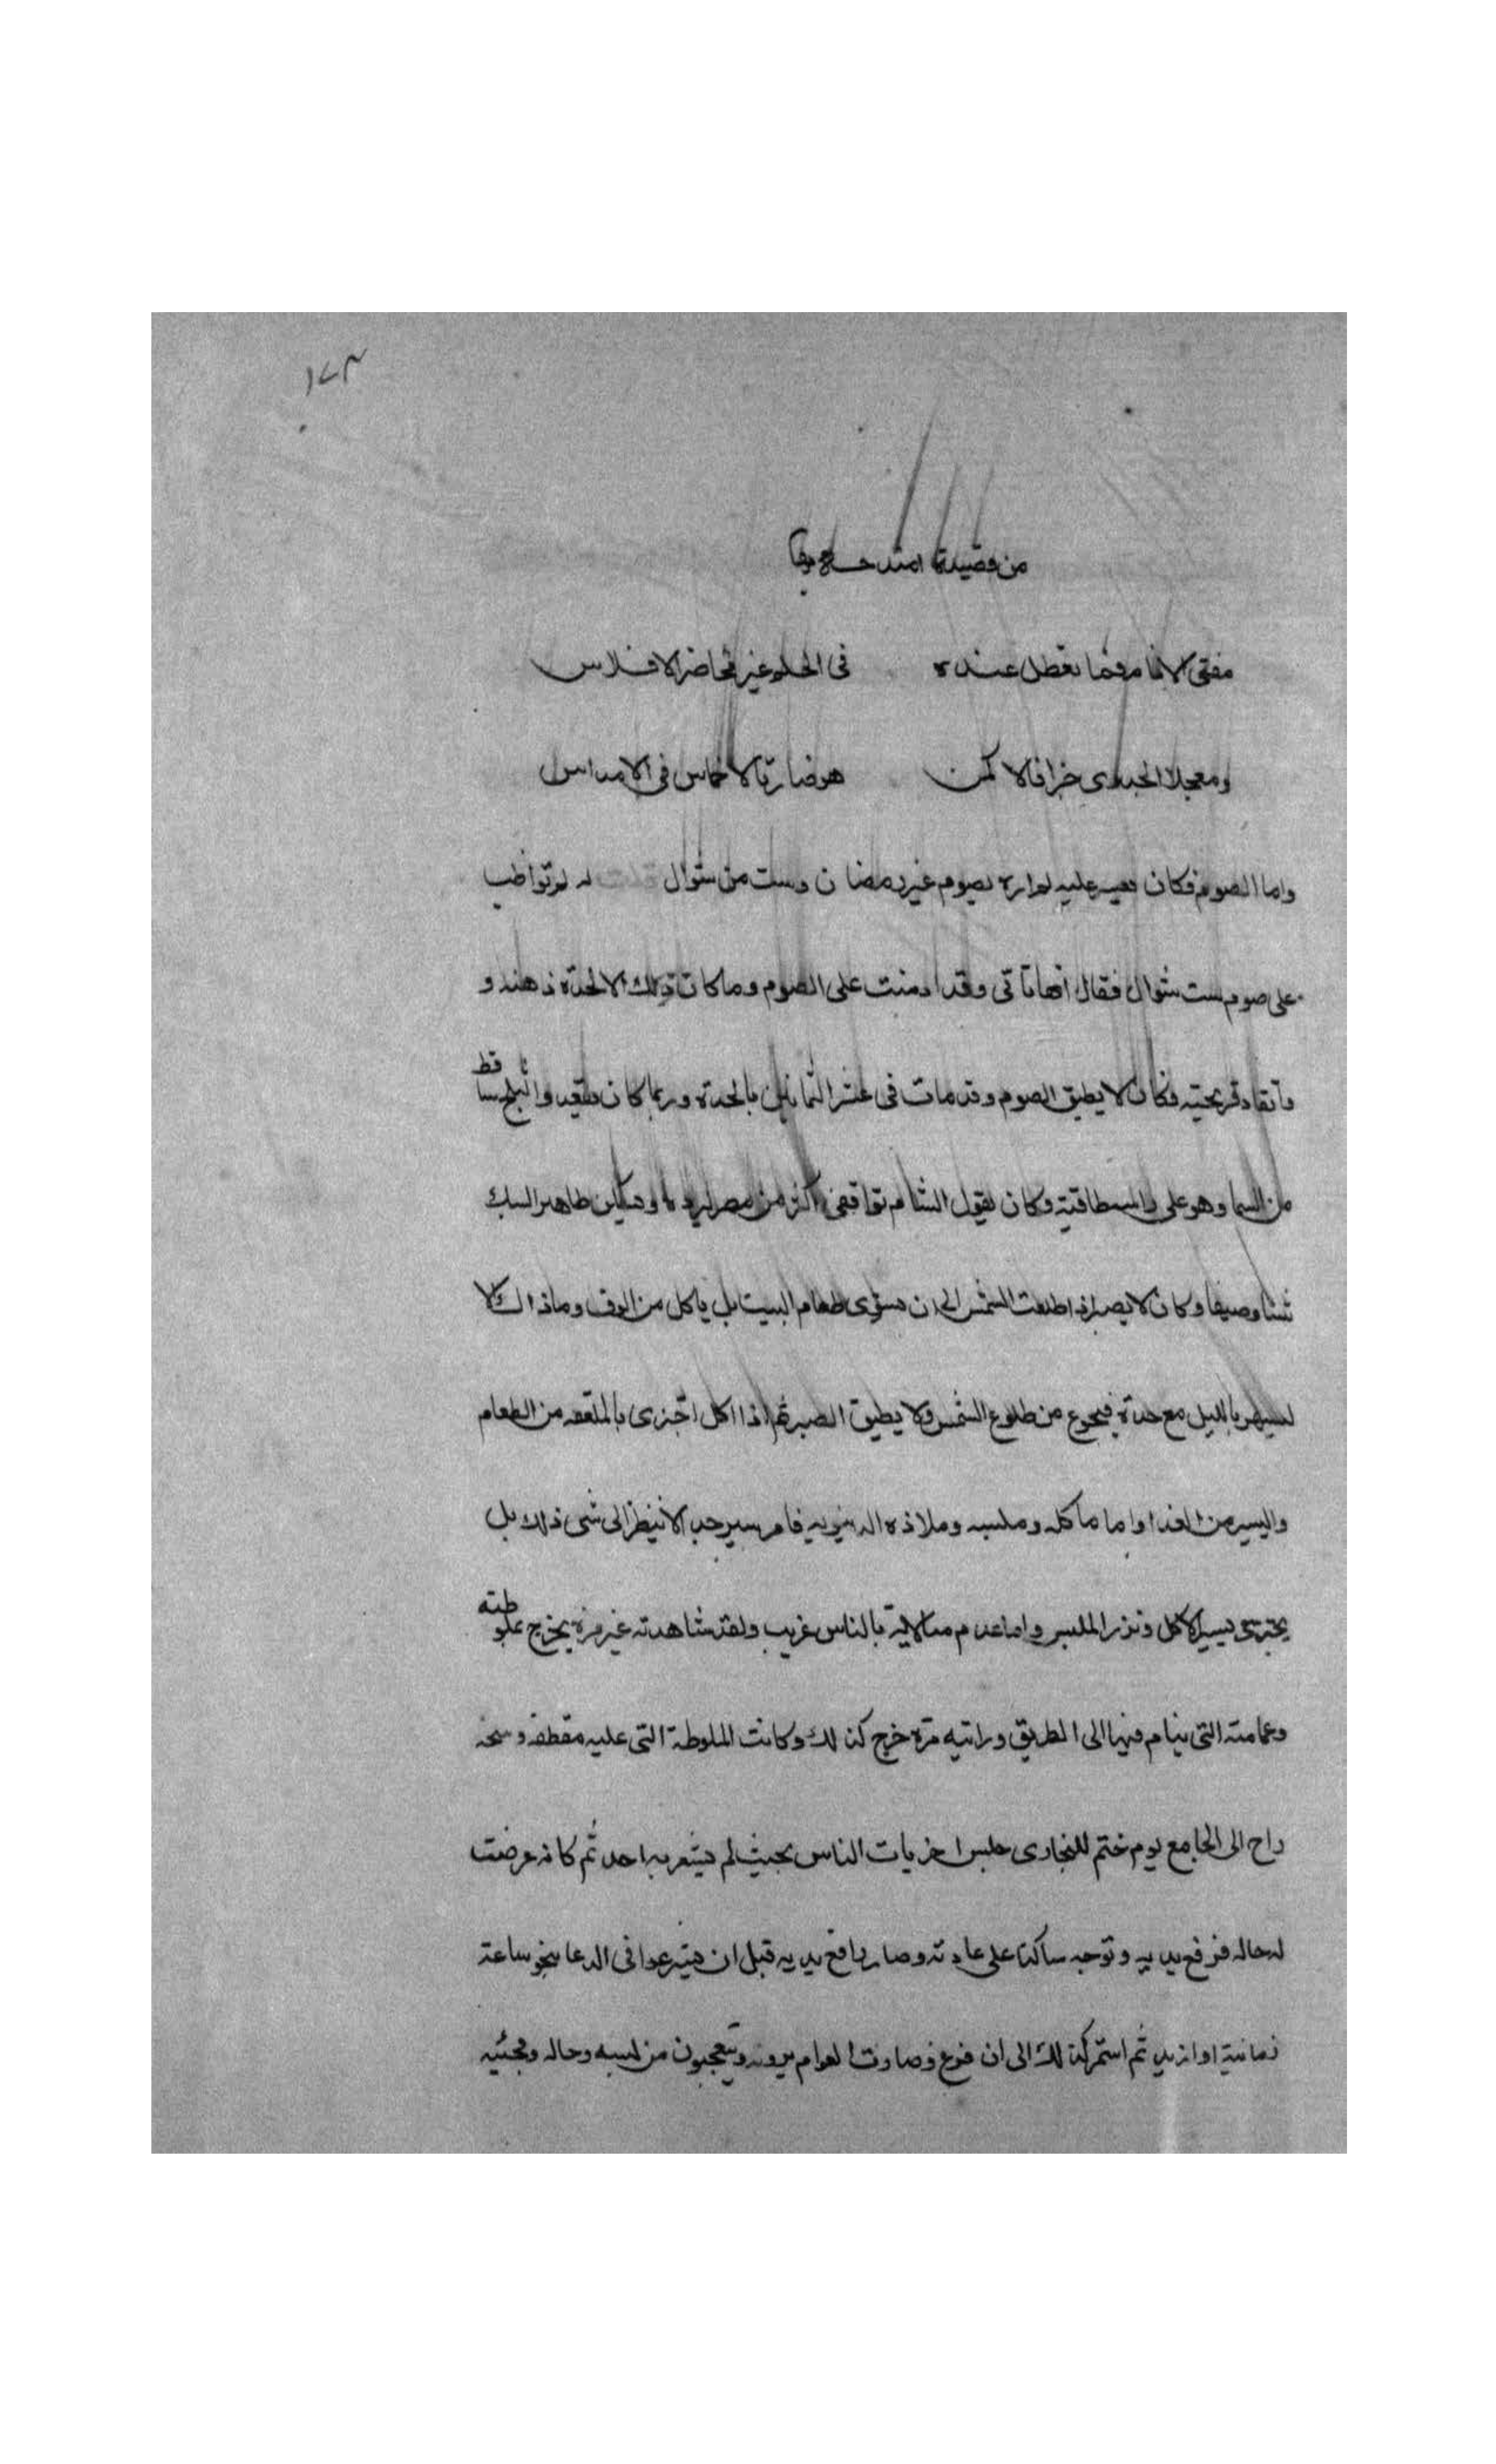 ١٧٣
من قصيدة امتدحه بها
مفتى الانام فما تعطل عنده فى الحلم غير محاضر الافلاس
ومعجلا الجدوى جزافا لا كمن هو ضارب الاخماس فى الاسداس
واما الصوم فكان يعسر عليه لم اره يصوم غير رمضان وست من شوال قلت له لم تواظب
على صوم ست شوال فقال انها تاتى وقد ادمنت على الصوم وما كان ذلك الا لحدة ذهنه و
واتقاد قريحته فكان لا يطيق الصوم وقد مات فى عشر الثمانين بالحدة وربما كان يقعد والثلج ساقط
من السما وهو على راسه طاقية وكان يقول الشام توافقنى اكثر من مصر لبرده وسكن ظاهر البلد
شتا وصيفا وكان لا يصبر اذا طلعت الشمس الى ان يستوى طعام البيت بل ياكل من السوق وما ذاك الا
لسهره بالليل مع حدته فيجوع من طلوع الشمس ولا يطيق الصبر ثم اذا اكل اجتزى بالملعقه من الطعام
واليسير من الغذا واما ماكله وملبسه وملاذه الدنيويه فامر يسير جدا لا ينظر الى شى ذلك بل
يجتزى بيسير الاكل ونزر الملبس واما عدم مبالاته بالناس غريب ولقد شاهدته غير مرة يخرج بملوطته
وعمامته التى ينام فيها الى الطريق ورايته مرة خرج كذلك وكانت الملوطة التى عليه مقطعه وسخه
راح الى الجامع يوم ختم للبخارى جلس اخريات الناس بحيث لم يشعر به احد ثم كانه عرضت
له حاله فرفع يديه وتوجه ساكتا على عادته وصار رافع يديه قبل ان يشرعوا فى الدعا بنحو ساعة
زمانية او ازيد ثم استمر كذلك الى ان فرغ وصارت العوام يرونه ويتعجبون من لبسه وحاله ومجئيه